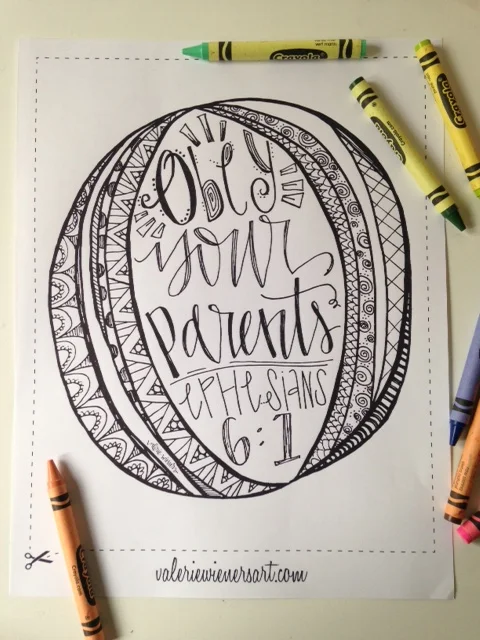 Obey
your
parents
EPHESIANS
6:1
valeriewienersart.com
Crayola
Crayola
Crayola
Crayola